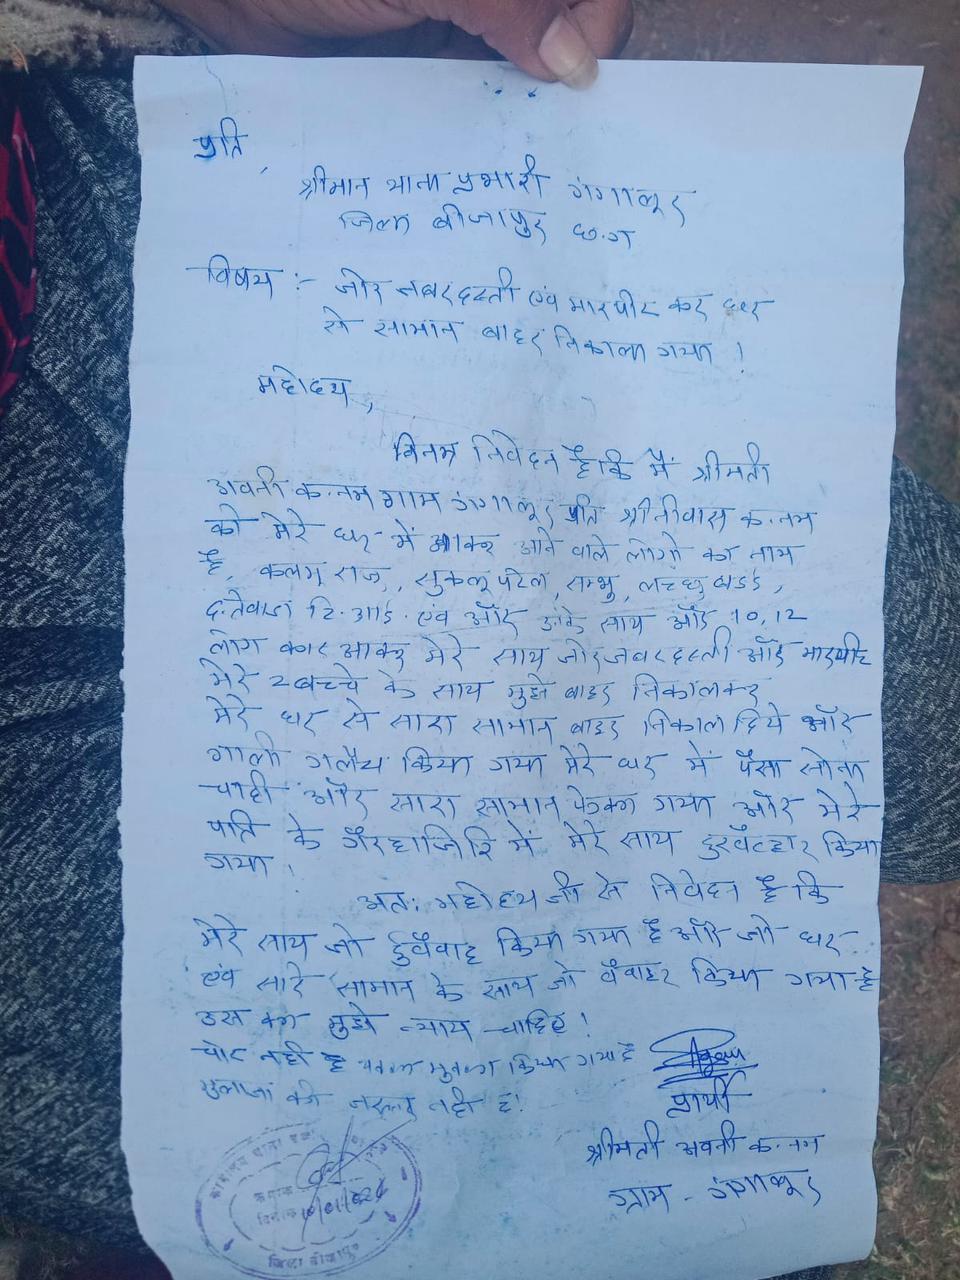 प्रति,
श्रीमान थाना प्रभारी गंगालूर
जिला बीजापुर छ.ग
विषय :- जोर जबरदस्ती एवं मारपीट कर घर
से सामान बाहर निकाला गया !
महोदय,
विनम्र निवेदन है कि मैं श्रीमती
अवनी क.नम ग्राम गंगालूर पति श्रीनिवास क.नम
को मेरे घर में आकर आने वाले लोगो का नाम
है, कलम राज, सुकलू पटेल, सम्भु, लच्छु
दंतेवाड़ा टि.आई. एवं और उनके साथ और 10,12
लोग आकर मेरे साथ जोर जबरदस्ती और मारपीट
मेरे 2 बच्चे के साथ मुझे बाहर निकालकर
मेरे घर से सारा सामान बाहर निकाल दिये और
गाली गलौच किया गया मेरे घर में पैसा सोना
चांदी और सारा सामान फेका गया और मेरे
पति के गैरहाजिरि में मेरे साथ दुरव्यवहार किया
गया !
अतः महोदय जी से निवेदन है कि
मेरे साथ जो किया गया है और जो घर
एवं सारे सामान के साथ जो किया गया है
उस का मुझे न्याय चाहिए !
चोट नही है किया गया है
की जरूरत नही है !
प्रार्थी
श्रीमती अवनी क.नम
ग्राम - गंगालूर
कार्यालय थाना
दिनांक
जिला बीजापुर